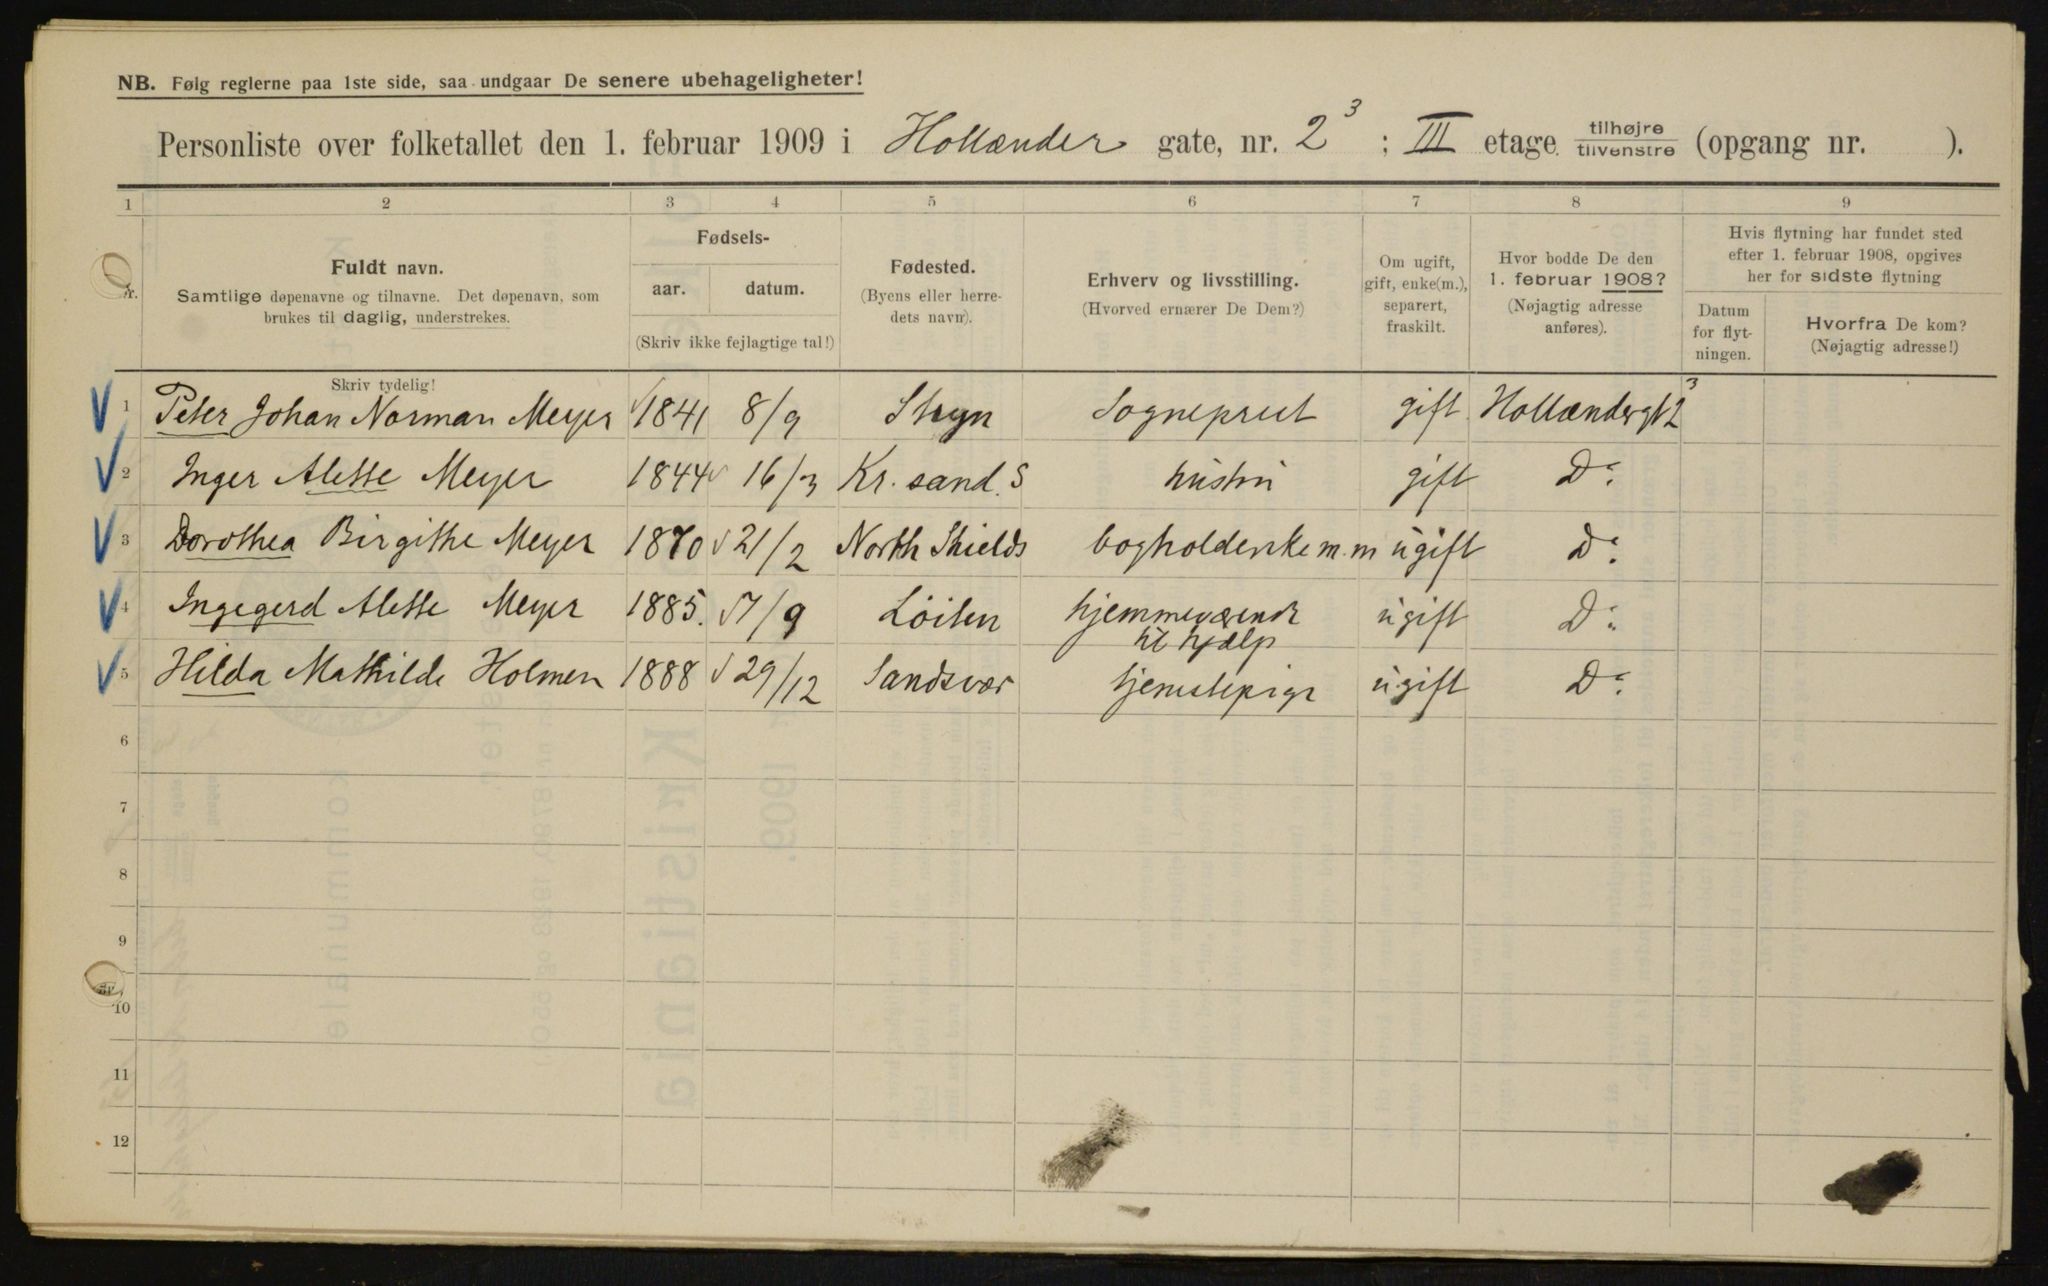 NB. Følg reglerne paa 1ste side, saa undgaar De senere ubehageligheter!
Personliste over folketallet den 1. februar 1909 i Hollænder gate, nr. 2³ ; III etage tilhøjre tilvenstre (opgang nr. ).
1 2 3 4 5 6 7 8 9
Nr.
Fuldt navn.
Samtlige døpenavne og tilnavne. Det døpenavn, som
brukes til daglig, understrekes.
Skriv tydelig!
Fødsels-
aar. datum.
(Skriv ikke fejlagtige tal!)
Fødested.
(Byens eller herre-
dets navn).
Erhverv og livsstilling.
(Hvorved ernærer De Dem?)
Om ugift,
gift, enke(m.),
separert,
fraskilt.
Hvor bodde De den
1. februar 1908?
(Nøjagtig adresse
anføres).
Hvis flytning har fundet sted
efter 1. februar 1908, opgives
her for sidste flytning
Datum
for flyt-
ningen.
Hvorfra De kom?
(Nøjagtig adresse!)
1 Peter Johan Norman Meyer 1841 8/9 Stryn Sogneprest gift Hollændergt 2³
2 Inger Alette Meyer 1844 16/3 Kr. sand. S hustru gift Do
3 Dorothea Birgithe Meyer 1870 21/2 North Shields bogholderske m.m ugift Do
4 Ingegerd Alette Meyer 1885. 7/9 Löiten hjemmeværende til hjælp ugift Do
5 Hilda Mathilde Holmen 1888 29/12 Sandsvær tjenestepige ugift Do
6
7
8
9
10
11
12